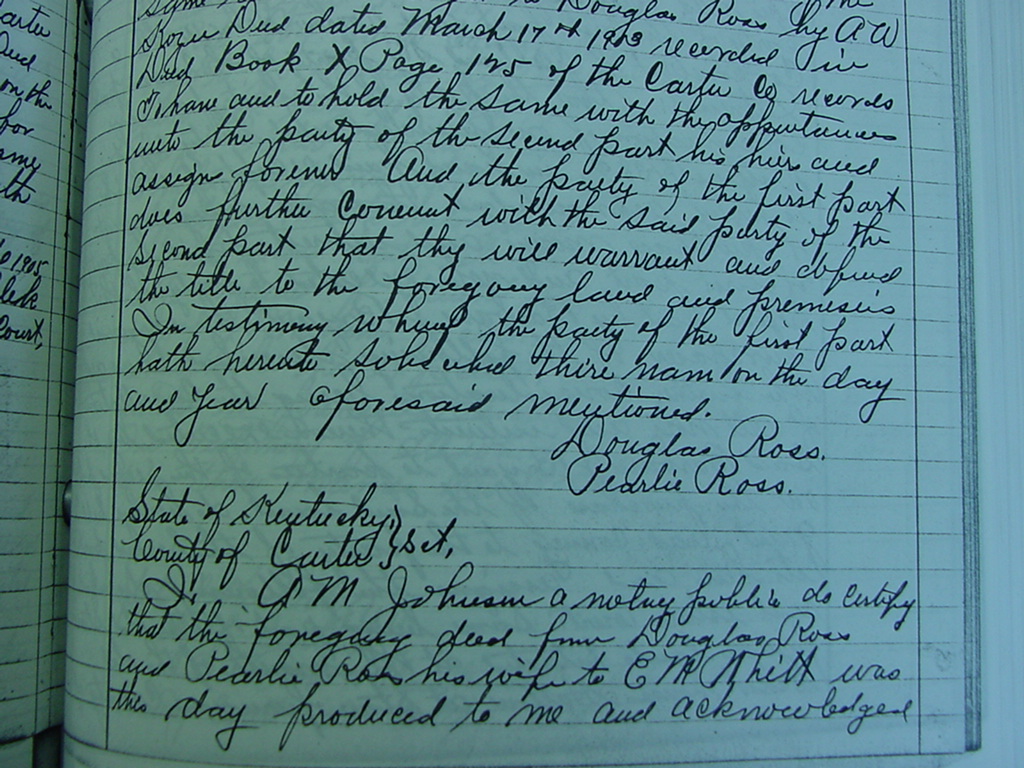 arter
Deed
on the
for
ame
lth
1905
Clerk
Court,
same to Douglas Ross by A W
Kozee Deed dated March 17th 1903 recorded in
Deed Book X Page 125 of the Carter Co records
To have and to hold the same with the appurtances
unto the party of the second part his heirs and
assign forever And the party of the first part
does further Covenant with the said party of the
second part that they will warrant and defend
the title to the foregoing land and premesis
In testimony whereof the party of the first part
hath hereunto subscribed thire nam on the day
and year aforesaid mentioned.
Douglas Ross.
Pearlie Ross.
State of Kentucky,}
County of Carter } Sct,
I, A M Johnson a notary public do certify
that the foregoing deed from Douglas Ross
and Pearlie Ross his wife to E M Whitt was
this day produced to me and acknowledged